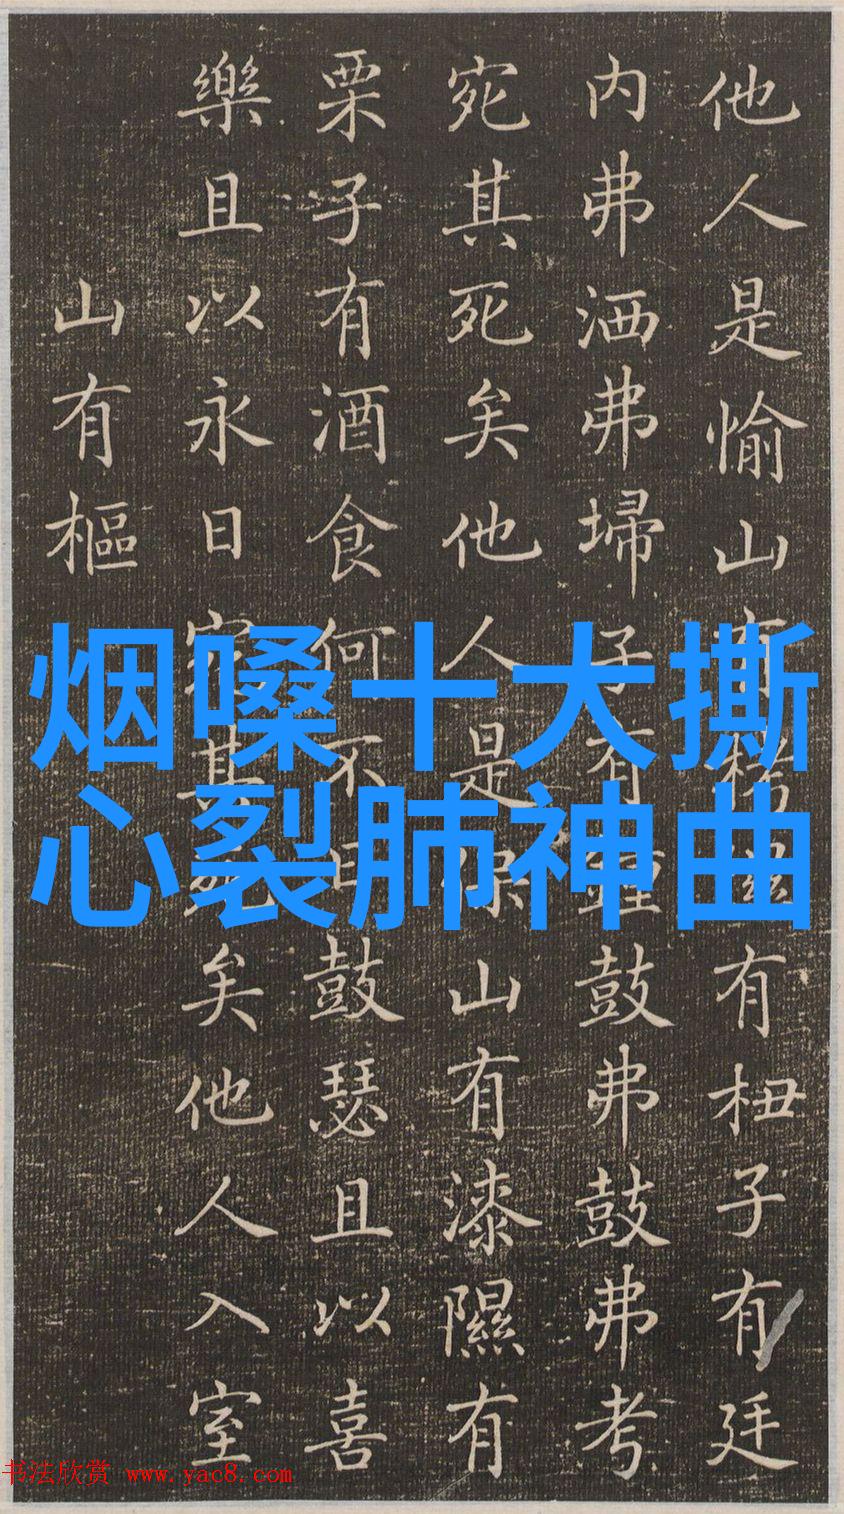 他人是愉山有栲隰有杻子有廷
内弗洒弗埽子有鍾鼓弗鼓弗考
宛其死矣他人是保山有漆隰有
栗子有酒食何不日鼓瑟且以喜
樂且以永日宛其死矣他人入室
山有樞
烟嗓十大撕
心裂肺神曲
书法欣赏 www.yac8.com